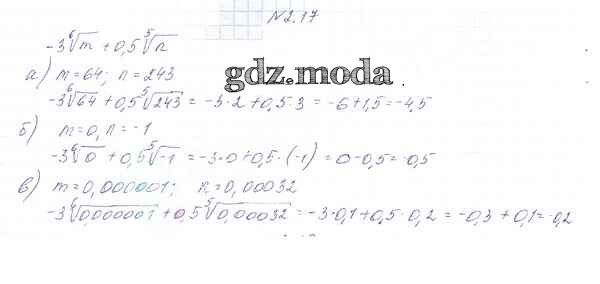 N2.17
-3⁶√m + 0,5 ⁵√n
gdz.moda
а) m=64; n=243
-3⁶√64 + 0,5 ⁵√243 = -3·2 + 0,5·3 = -6+1,5=-4,5
б) m=0, n=-1
-3⁶√0 + 0,5 ⁵√-1 = -3·0+0,5·(-1) = 0-0,5=-0,5
в) m=0,000001; n=0,00032
-3⁶√0,000001 + 0,5 ⁵√0,00032 = -3·0,1+0,5·0,2 = -0,3 + 0,1=-0,2